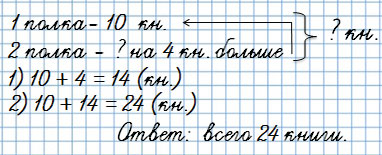 1 полка - 10 кн.
? кн.
2 полка - ? на 4 кн. больше
1) 10 + 4 = 14 (кн.)
2) 10 + 14 = 24 (кн.)
Ответ: всего 24 книги.